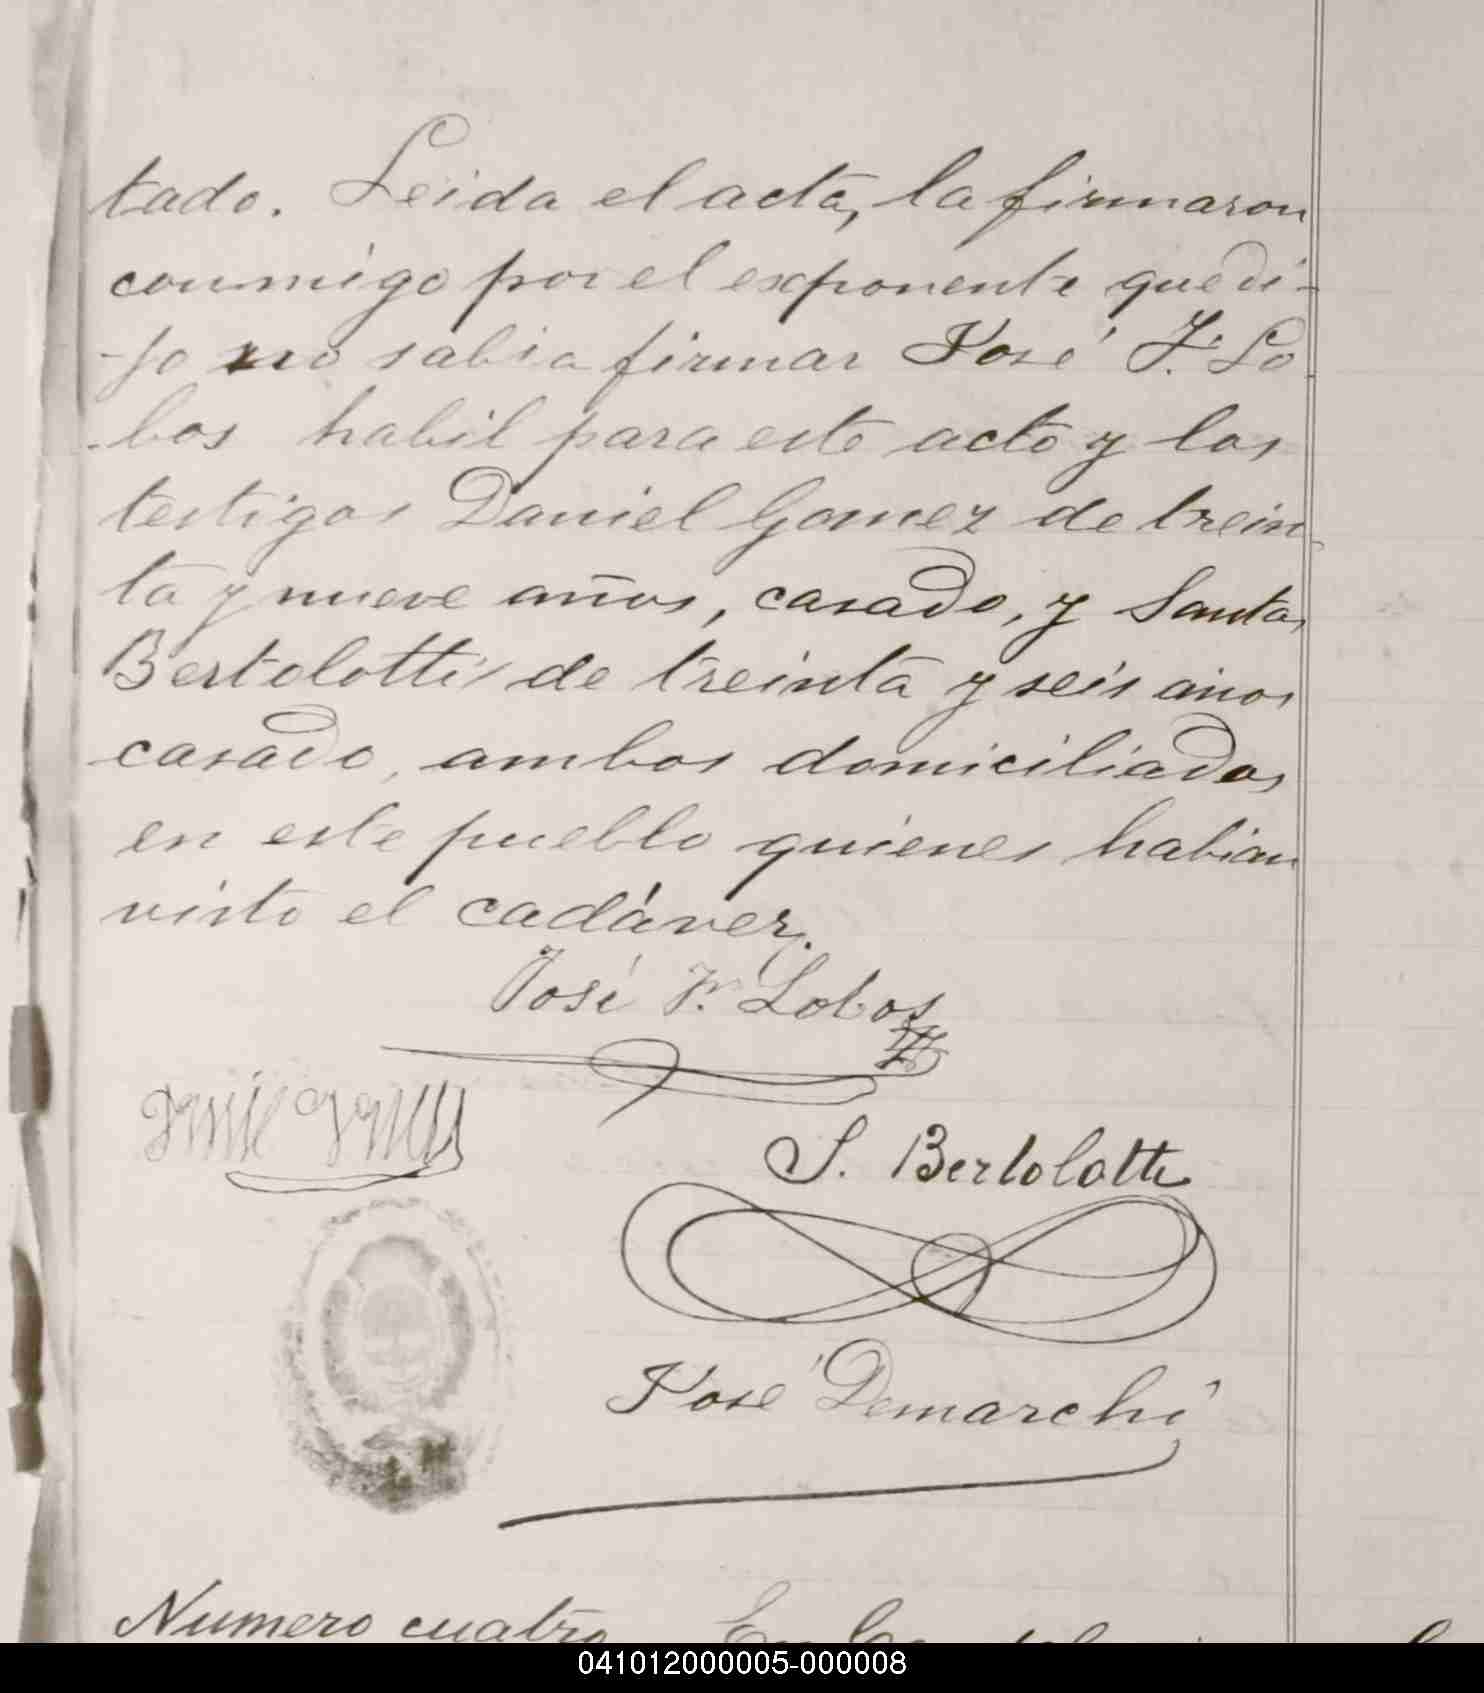 tado. Leida el acta, la firmaron
conmigo por el exponente que di-
-jo no sabia firmar José F. Lo
-bos habil para este acto y los
testigos Daniel Gomez de trein-
ta y nueve años, casado, y Santos
Bertolotti de treinta y seis años
casado, ambos domiciliados
en este pueblo quienes habian
visto el cadáver.
José F. Lobos
S. Bertolotti
José Demarchi
Numero cuatro En la
041012000005-000008